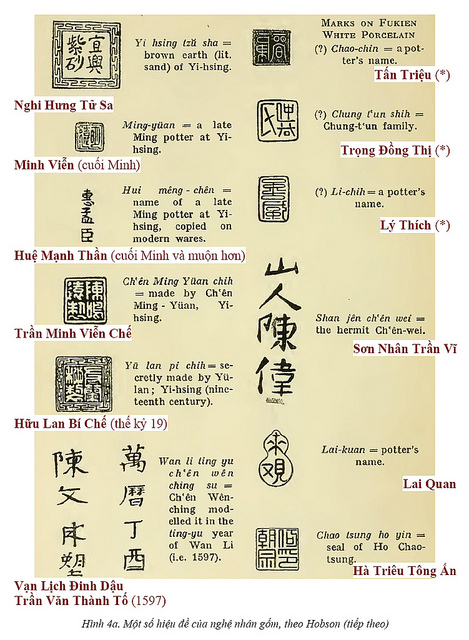 宜興
紫砂
Yi hsing tzŭ sha =
brown earth (lit.
sand) of Yi-hsing.
Nghi Hưng Tử Sa
Ming-yüan = a late
Ming potter at Yi-
hsing.
Minh Viễn (cuối Minh)
惠孟臣
Hui mêng - chên =
name of a late
Ming potter at Yi-
hsing, copied on
modern wares.
Huệ Mạnh Thần (cuối Minh và muộn hơn)
Ch'ên Ming Yüan chih
= made by Ch'ên
Ming - Yüan, Yi-
hsing.
Trần Minh Viễn Chế
Yü lan pi chih = se-
cretly made by Yü-
lan; Yi-hsing (nine-
teenth century).
Hữu Lan Bí Chế (thế kỷ 19)
萬曆丁酉
陳文
Wan li ting yu
ch'ên wên
ching su =
Ch'ên Wên-
ching mod-
elled it in the
ting-yu year
of Wan Li
(i.e. 1597).
Vạn Lịch Đinh Dậu
Trần Văn Thành Tố (1597)
MARKS ON FUKIEN
WHITE PORCELAIN
(?) Chao-chin = a pot-
ter's name.
Tấn Triệu (*)
(?) Chung t'un shih =
Chung-t'un family.
Trọng Đồng Thị (*)
(?) Li-chih = a potter's
name.
Lý Thích (*)
山人陳偉
Shan jên ch'ên wei =
the hermit Ch'ên-wei.
Sơn Nhân Trần Vĩ
Lai-kuan = potter's
name.
Lai Quan
Chao tsung ho yin =
seal of Ho Chao-
tsung.
Hà Triêu Tông Ấn
Hình 4a. Một số hiệu đề của nghệ nhân gốm, theo Hobson (tiếp theo)